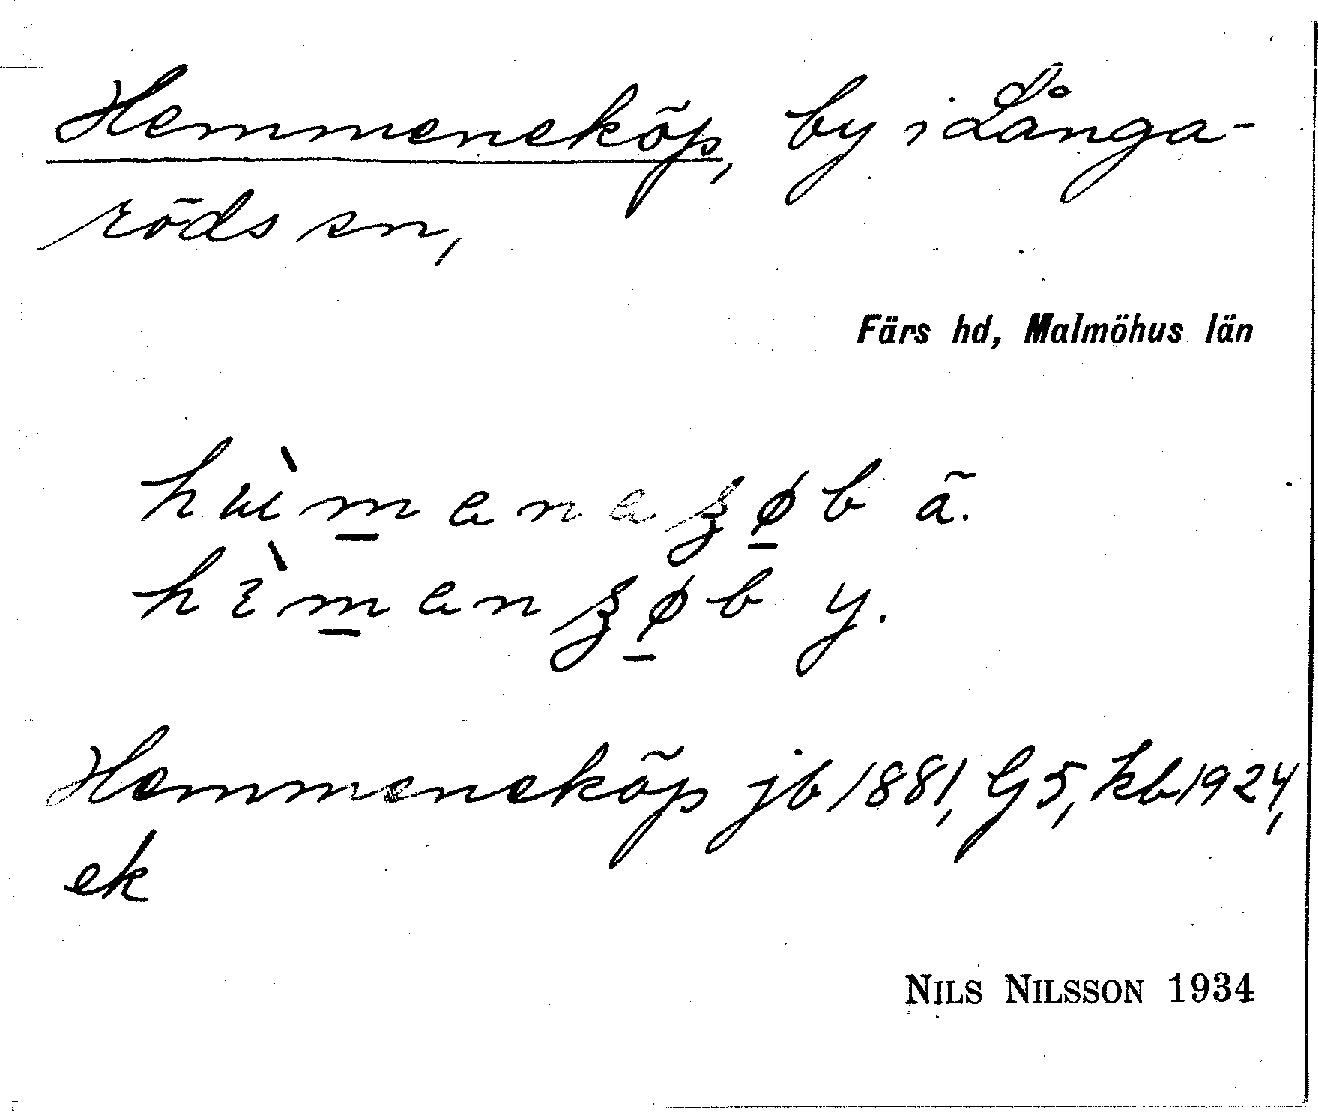 Hemmeneköp, by i Långa-
röds sn,
Färs hd, Malmöhus län
ä.
y.
Hemmeneköp jb 1881, G5, kb 1924,
ek
NILS NILSSON 1934